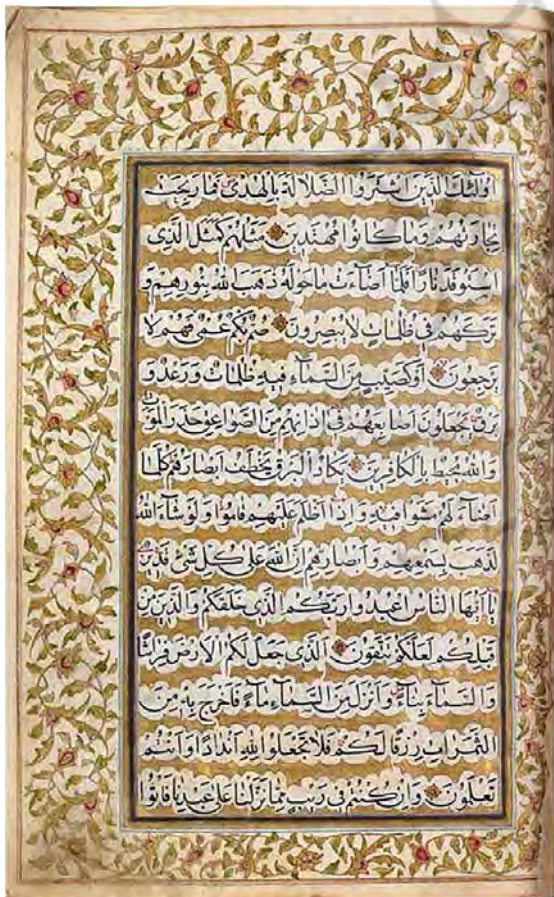 اُولٰئِكَ الَّذِينَ اشْتَرَوُا الضَّلَالَةَ بِالْهُدٰى فَمَا رَبِحَتْ
تِجَارَتُهُمْ وَمَا كَانُوا مُهْتَدِينَ مَثَلُهُمْ كَمَثَلِ الَّذِى
اسْتَوْقَدَ نَارًا فَلَمَّا اَضَآءَتْ مَا حَوْلَهُ ذَهَبَ اللّٰهُ بِنُورِهِمْ وَ
تَرَكَهُمْ فِى ظُلُمَاتٍ لَا يُبْصِرُونَ صُمٌّ بُكْمٌ عُمْىٌ فَهُمْ لَا
يَرْجِعُونَ اَوْ كَصَيِّبٍ مِنَ السَّمَآءِ فِيهِ ظُلُمَاتٌ وَرَعْدٌ وَ
بَرْقٌ يَجْعَلُونَ اَصَابِعَهُمْ فِى اٰذَانِهِمْ مِنَ الصَّوَاعِقِ حَذَرَ الْمَوْتِ
وَاللّٰهُ مُحِيطٌ بِالْكَافِرِينَ يَكَادُ الْبَرْقُ يَخْطَفُ اَبْصَارَهُمْ كُلَّمَا
اَضَآءَ لَهُمْ مَشَوْا فِيهِ وَاِذَا اَظْلَمَ عَلَيْهِمْ قَامُوا وَلَوْ شَآءَ اللّٰهُ
لَذَهَبَ بِسَمْعِهِمْ وَاَبْصَارِهِمْ اِنَّ اللّٰهَ عَلٰى كُلِّ شَىْءٍ قَدِيرٌ
يَا اَيُّهَا النَّاسُ اعْبُدُوا رَبَّكُمُ الَّذِى خَلَقَكُمْ وَالَّذِينَ مِنْ
قَبْلِكُمْ لَعَلَّكُمْ تَتَّقُونَ اَلَّذِى جَعَلَ لَكُمُ الْاَرْضَ فِرَاشًا
وَالسَّمَآءَ بِنَآءً وَاَنْزَلَ مِنَ السَّمَآءِ مَآءً فَاَخْرَجَ بِهِ مِنَ
الثَّمَرَاتِ رِزْقًا لَكُمْ فَلَا تَجْعَلُوا لِلّٰهِ اَنْدَادًا وَاَنْتُمْ
تَعْلَمُونَ وَاِنْ كُنْتُمْ فِى رَيْبٍ مِمَّا نَزَّلْنَا عَلٰى عَبْدِنَا فَاْتُوا